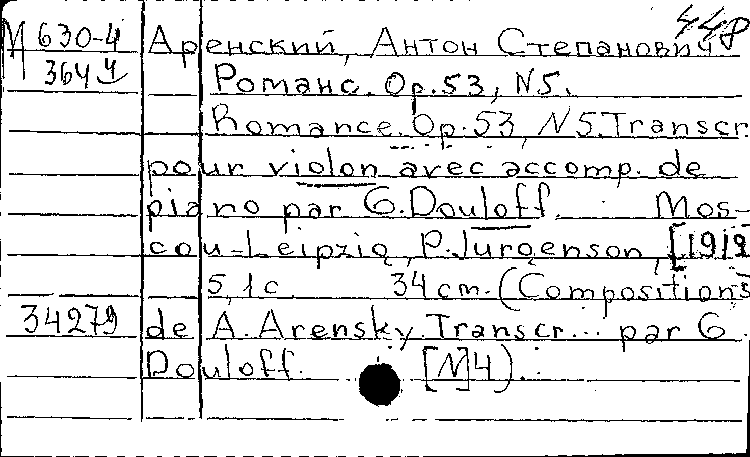 448
М 630-4 Аренский, Антон Степанович
364 Романс. Ор.53, N5.
Romance. Op.53, N5. Transcr.
pour violon avec accomp. de
piano par G. Douloff. Mos-
cou-Leipzig, P. Jurgenson, [1912
5, 1 c. 34 cm. (Compositions
34279 de A. Arensky. Transcr... par G.
Douloff. [N]4).